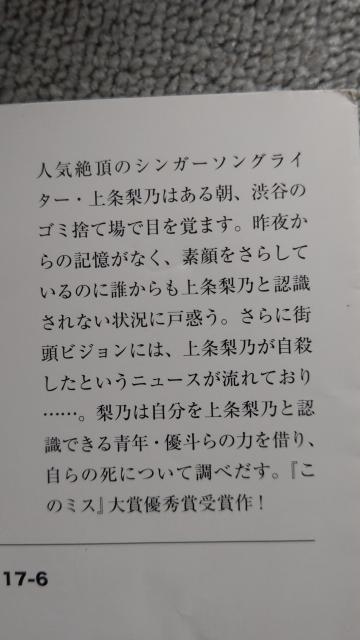 人気絶頂のシンガーソングライ
ター・上条梨乃はある朝、渋谷の
ゴミ捨て場で目を覚ます。昨夜か
らの記憶がなく、素顔をさらして
いるのに誰からも上条梨乃と認識
されない状況に戸惑う。さらに街
頭ビジョンには、上条梨乃が自殺
したというニュースが流れており
……。梨乃は自分を上条梨乃と認
識できる青年・優斗らの力を借り、
自らの死について調べだす。『こ
のミス』大賞優秀賞受賞作！
17-6